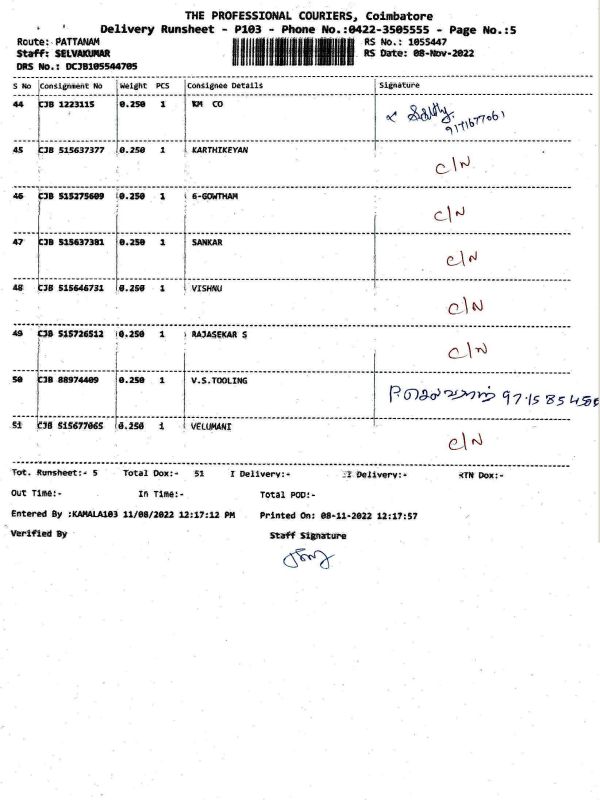 THE PROFESSIONAL COURIERS, Coimbatore
Delivery Runsheet - P103 - Phone No.:0422-3505555 - Page No.:5
Route: PATTANAM RS No.: 1055447
Staff: SELVAKUMAR RS Date: 08-Nov-2022
DRS No.: DCJB105544705
S No Consignment No Weight PCS Consignee Details Signature
44 CJB 1223115 0.250 1 KM CO
9171677061
45 CJB 515637377 0.250 1 KARTHIKEYAN C/N
46 CJB 515275609 0.250 1 6-GOWTHAM C/N
47 CJB 515637381 0.250 1 SANKAR C/N
48 CJB 515646731 0.250 1 VISHNU C/N
49 CJB 515726512 0.250 1 RAJASEKAR S C/N
50 CJB 88974409 0.250 1 V.S.TOOLING
51 CJB 515677065 0.250 1 VELUMANI C/N
Tot. Runsheet:- 5 Total Dox:- 51 I Delivery:- II Delivery:- RTN Dox:-
Out Time:- In Time:- Total POD:-
Entered By :KAMALA103 11/08/2022 12:17:12 PM Printed On: 08-11-2022 12:17:57
Verified By Staff Signature